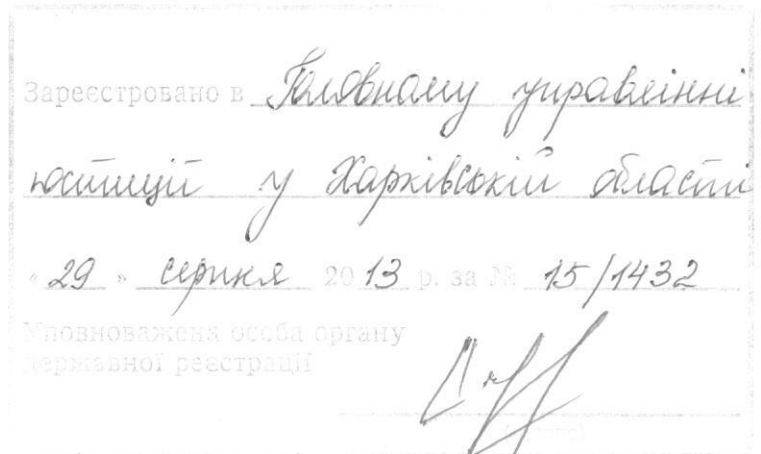 Зареєстровано в Головному управлінні
юстиції у Харківській області
« 29 » серпня 2013 р. за № 15/1432
Уповноважена особа органу
державної реєстрації
(підпис)